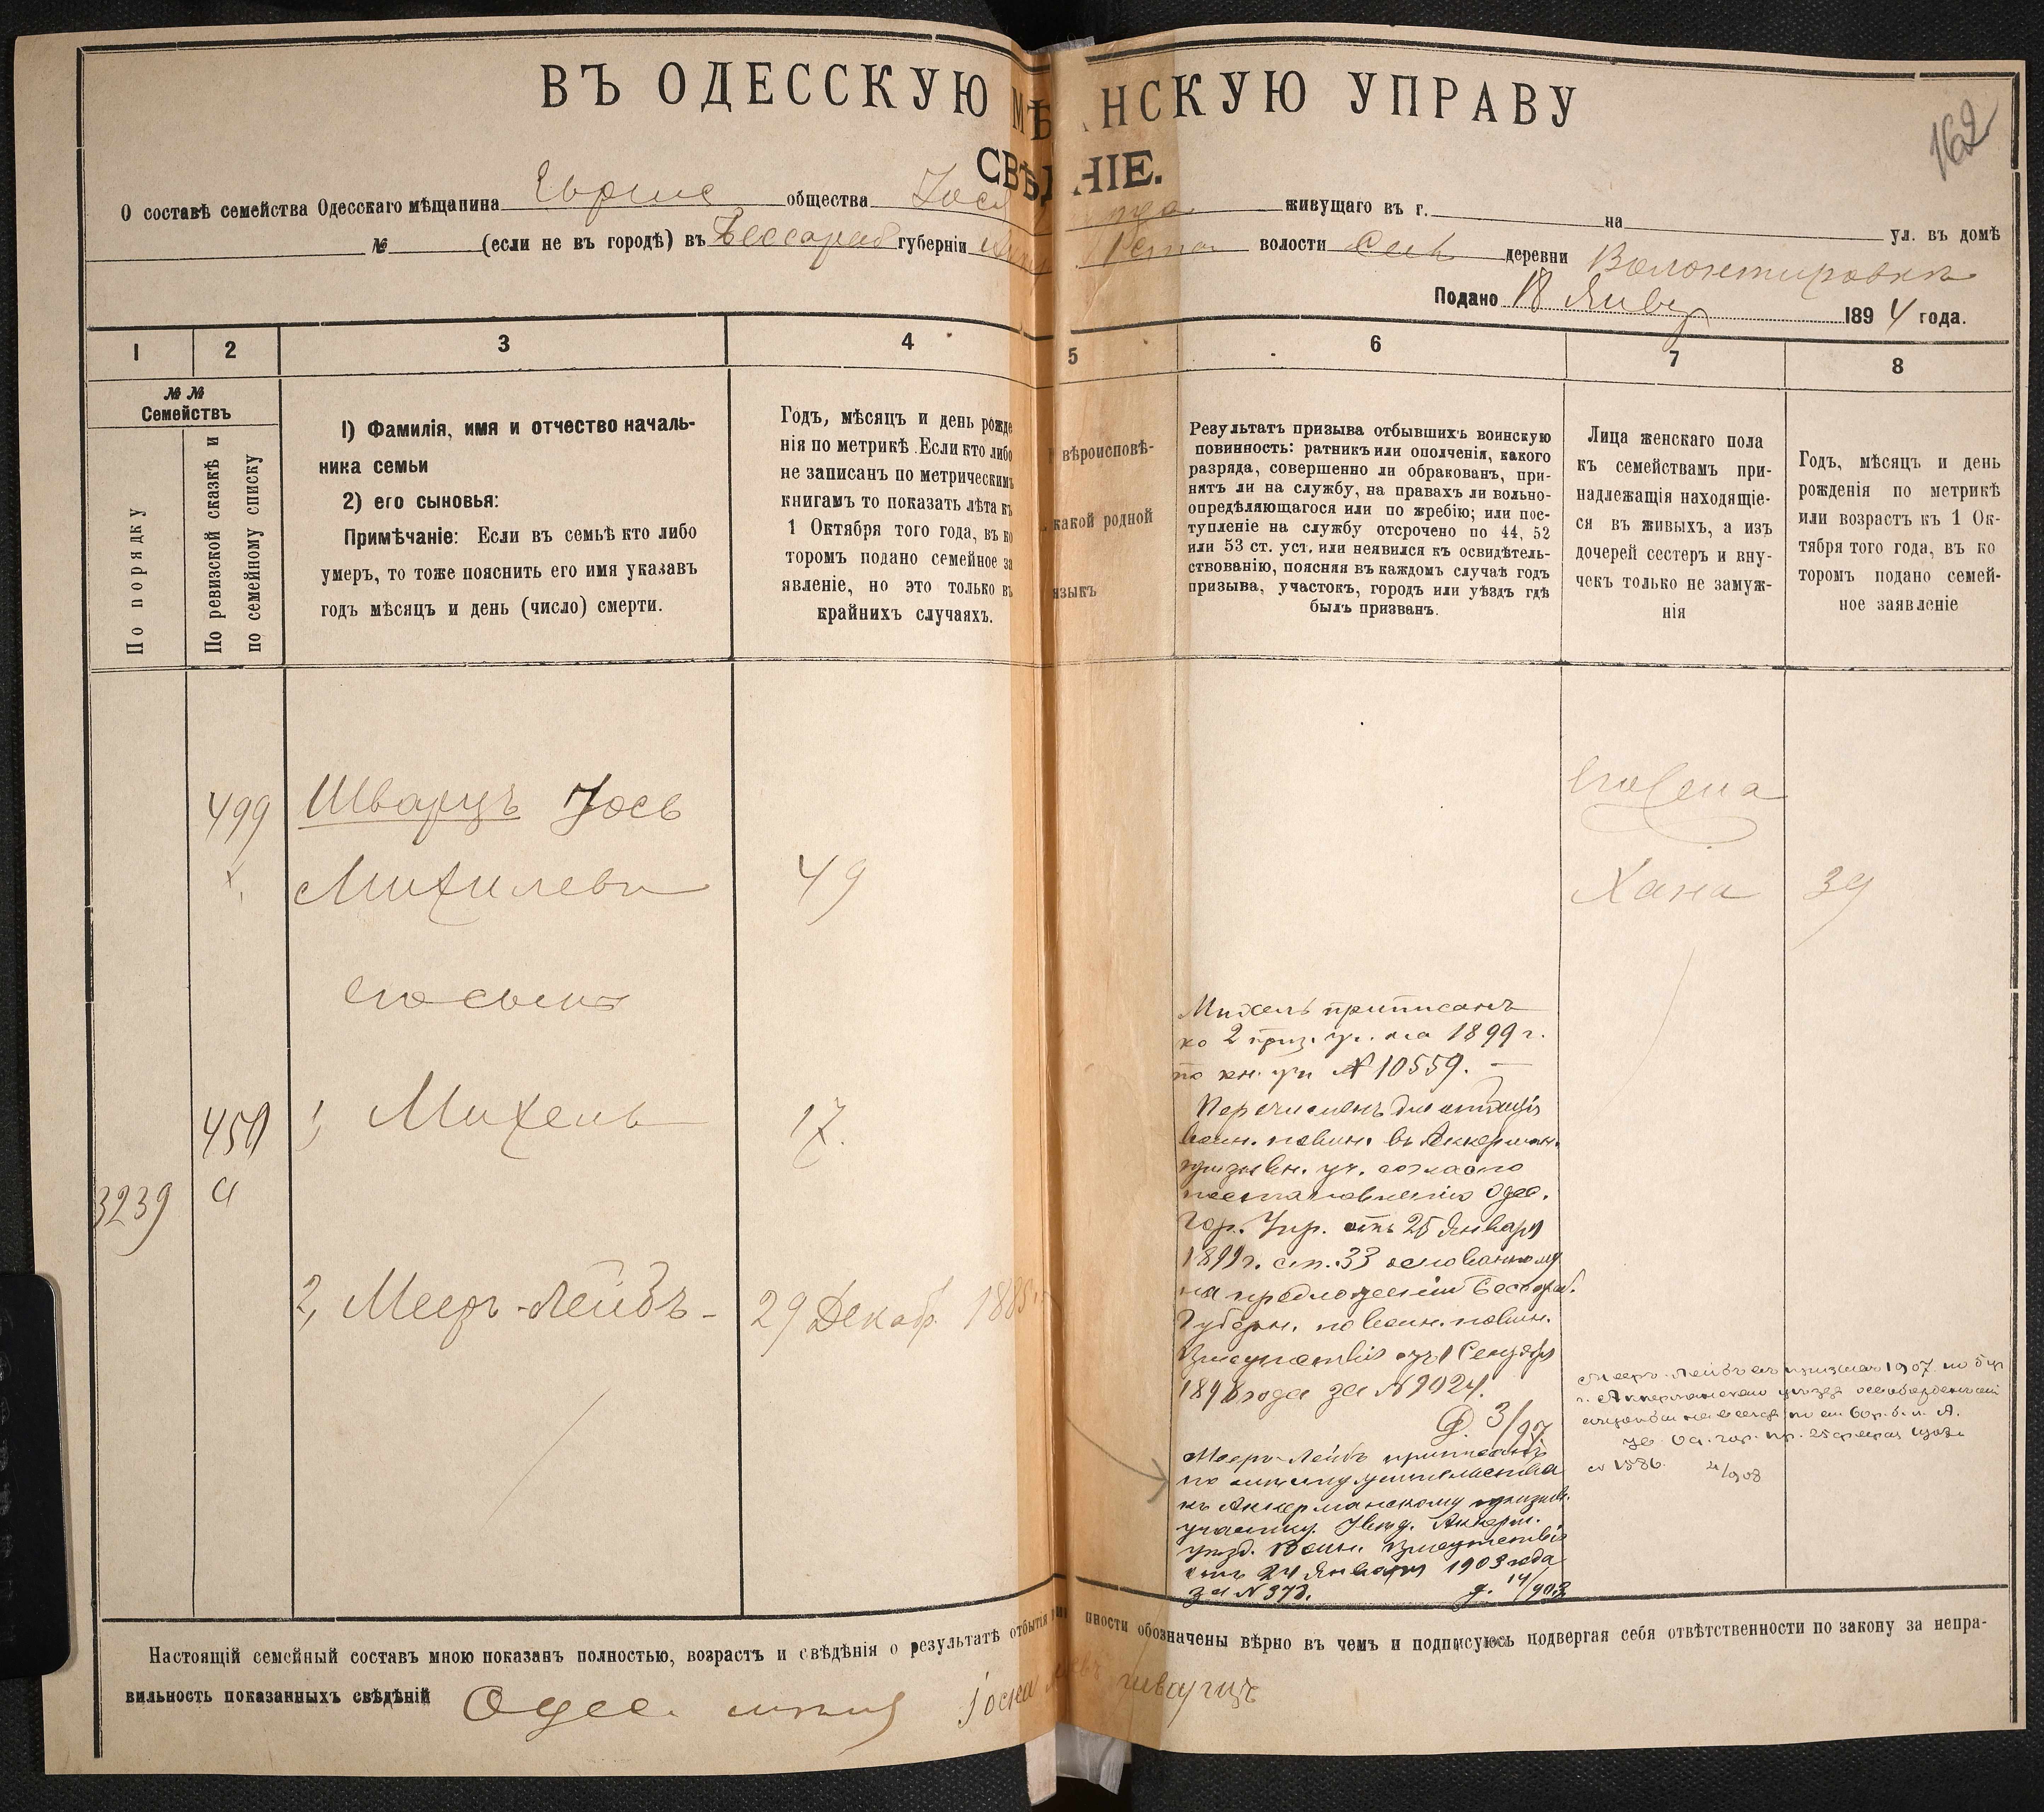 ВЪ ОДЕССКУЮ МѢ НСКУЮ УПРАВУ
162
СВѢД НІЕ.
О составѣ семейства Одесскаго мѣщанина общества Іос живущаго въ г. на ул. въ домѣ
№ (если не въ городѣ) въ Бессараб губерніи волости Сел деревни Волонтировки
Подано 18 Янвр 1894 года.
1 2 3 4 5 6 7 8
№ №
Семействъ
По порядку
По ревизской сказкѣ и
по семейному списку
1) Фамилія, имя и отчество началь-
ника семьи
2) его сыновья:
Примѣчаніе: Если въ семьѣ кто либо
умеръ, то тоже пояснить его имя указавъ
годъ мѣсяцъ и день (число) смерти.
Годъ, мѣсяцъ и день рожде
нія по метрикѣ. Если кто либо
не записанъ по метрическимъ
книгамъ то показать лѣта къ
1 Октября того года, въ ко
торомъ подано семейное за
явленіе, но это только въ
крайнихъ случаяхъ.
вѣроисповѣ-
какой родной
языкъ
Результатъ призыва отбывшихъ воинскую
повинность: ратникъ или ополченія, какого
разряда, совершенно ли обракованъ, при-
нятъ ли на службу, на правахъ ли вольно-
опредѣляющагося или по жребію; или пос-
тупленіе на службу отсрочено по 44, 52
или 53 ст. уст. или неявился къ освидѣтель-
ствованію, поясняя въ каждомъ случаѣ годъ
призыва, участокъ, городъ или уѣздъ гдѣ
былъ призванъ.
Лица женскаго пола
къ семействамъ при-
надлежащія находящіе-
ся въ живыхъ, а изъ
дочерей сестеръ и вну-
чекъ только не замуж-
нія
Годъ, мѣсяцъ и день
рожденія по метрикѣ
или возрастъ къ 1 Ок-
тября того года, въ ко
торомъ подано семей-
ное заявленіе
499 Шварцъ Іось
Михилевъ 49
его жена
Хана 39
его сыны
450 1, Михель 17.
3239 а
2, Мееръ-Лейбъ - 29 Декабр 188
Михель приписанъ
ко 2 приз. уч. на 1899 г.
по кн. уч № 10559. —
Перечисленъ для отбыція
воин. повин. въ Аккерман.
призывн. уч. согласно
постановленію Одес.
Гор. Упр. отъ 25 Января
1899 г. ст. 33 основанному
на предложеніи Бессараб.
Губерн. по воин. повин.
Присутствія отъ 1 Сентября
1898 года за № 9024.
Мееръ-Лейбъ приписанъ
по мѣсту жительства
къ Аккерманскому призыв.
участку. Увѣд. Аккерм.
уѣзд. Воин. Присутствія
отъ 24 Января 1903 года
за № 373. 14/903
Мееръ-Лейбъ въ призывъ 1907
№ 1586. 4/908
Настоящій семейный составъ мною показанъ полностью, возрастъ и свѣдѣнія о результатѣ отбытія нности обозначены вѣрно въ чемъ и подписуюсь подвергая себя отвѣтственности по закону за непра-
вильность показанныхъ свѣдѣній Одес. шварцъ